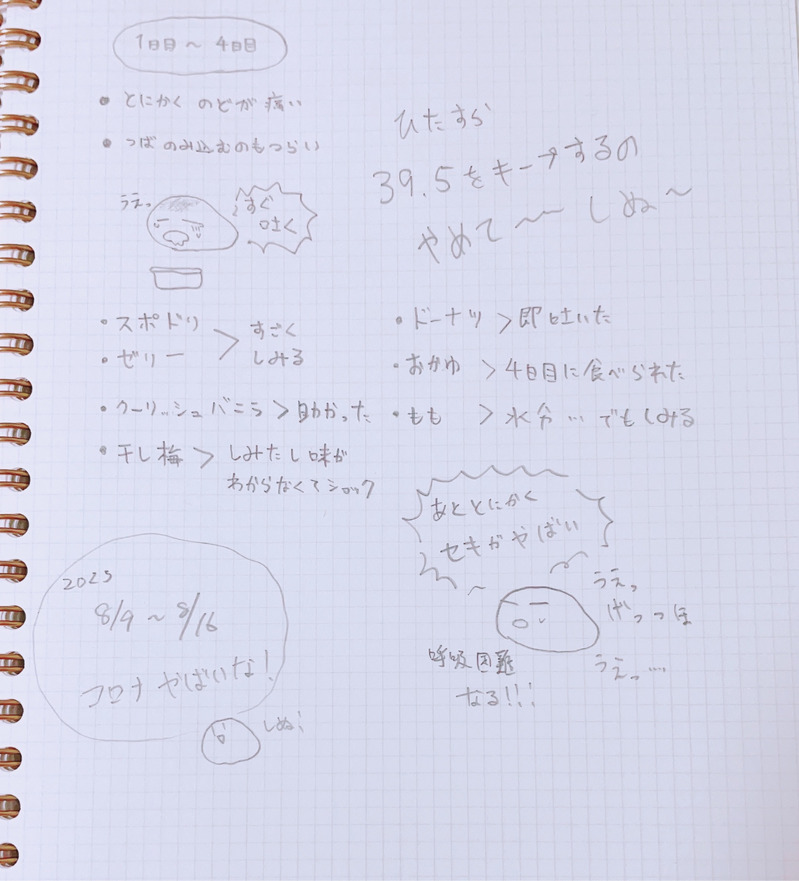 1日目～4日目
• とにかく のどが痛い
• つばのみ込むのもつらい
うえっ
すぐ
吐く
ひたすら
39.5をキープするの
やめて〜〜しぬ〜
• スポドリ
• ゼリー
> すごく
しみる
• クーリッシュバニラ > 助かった
• 干し梅 > しみたし味が
わからなくてショック
• ドーナツ > 即吐いた
• おかゆ > 4日目に食べられた
• もも > 水分…でもしみる
あととにかく
セキがやばい
うえっ
げっっほ
うえっ…
呼吸困難
なる!!!
2025
8/9～8/16
コロナやばいな!
しぬ!